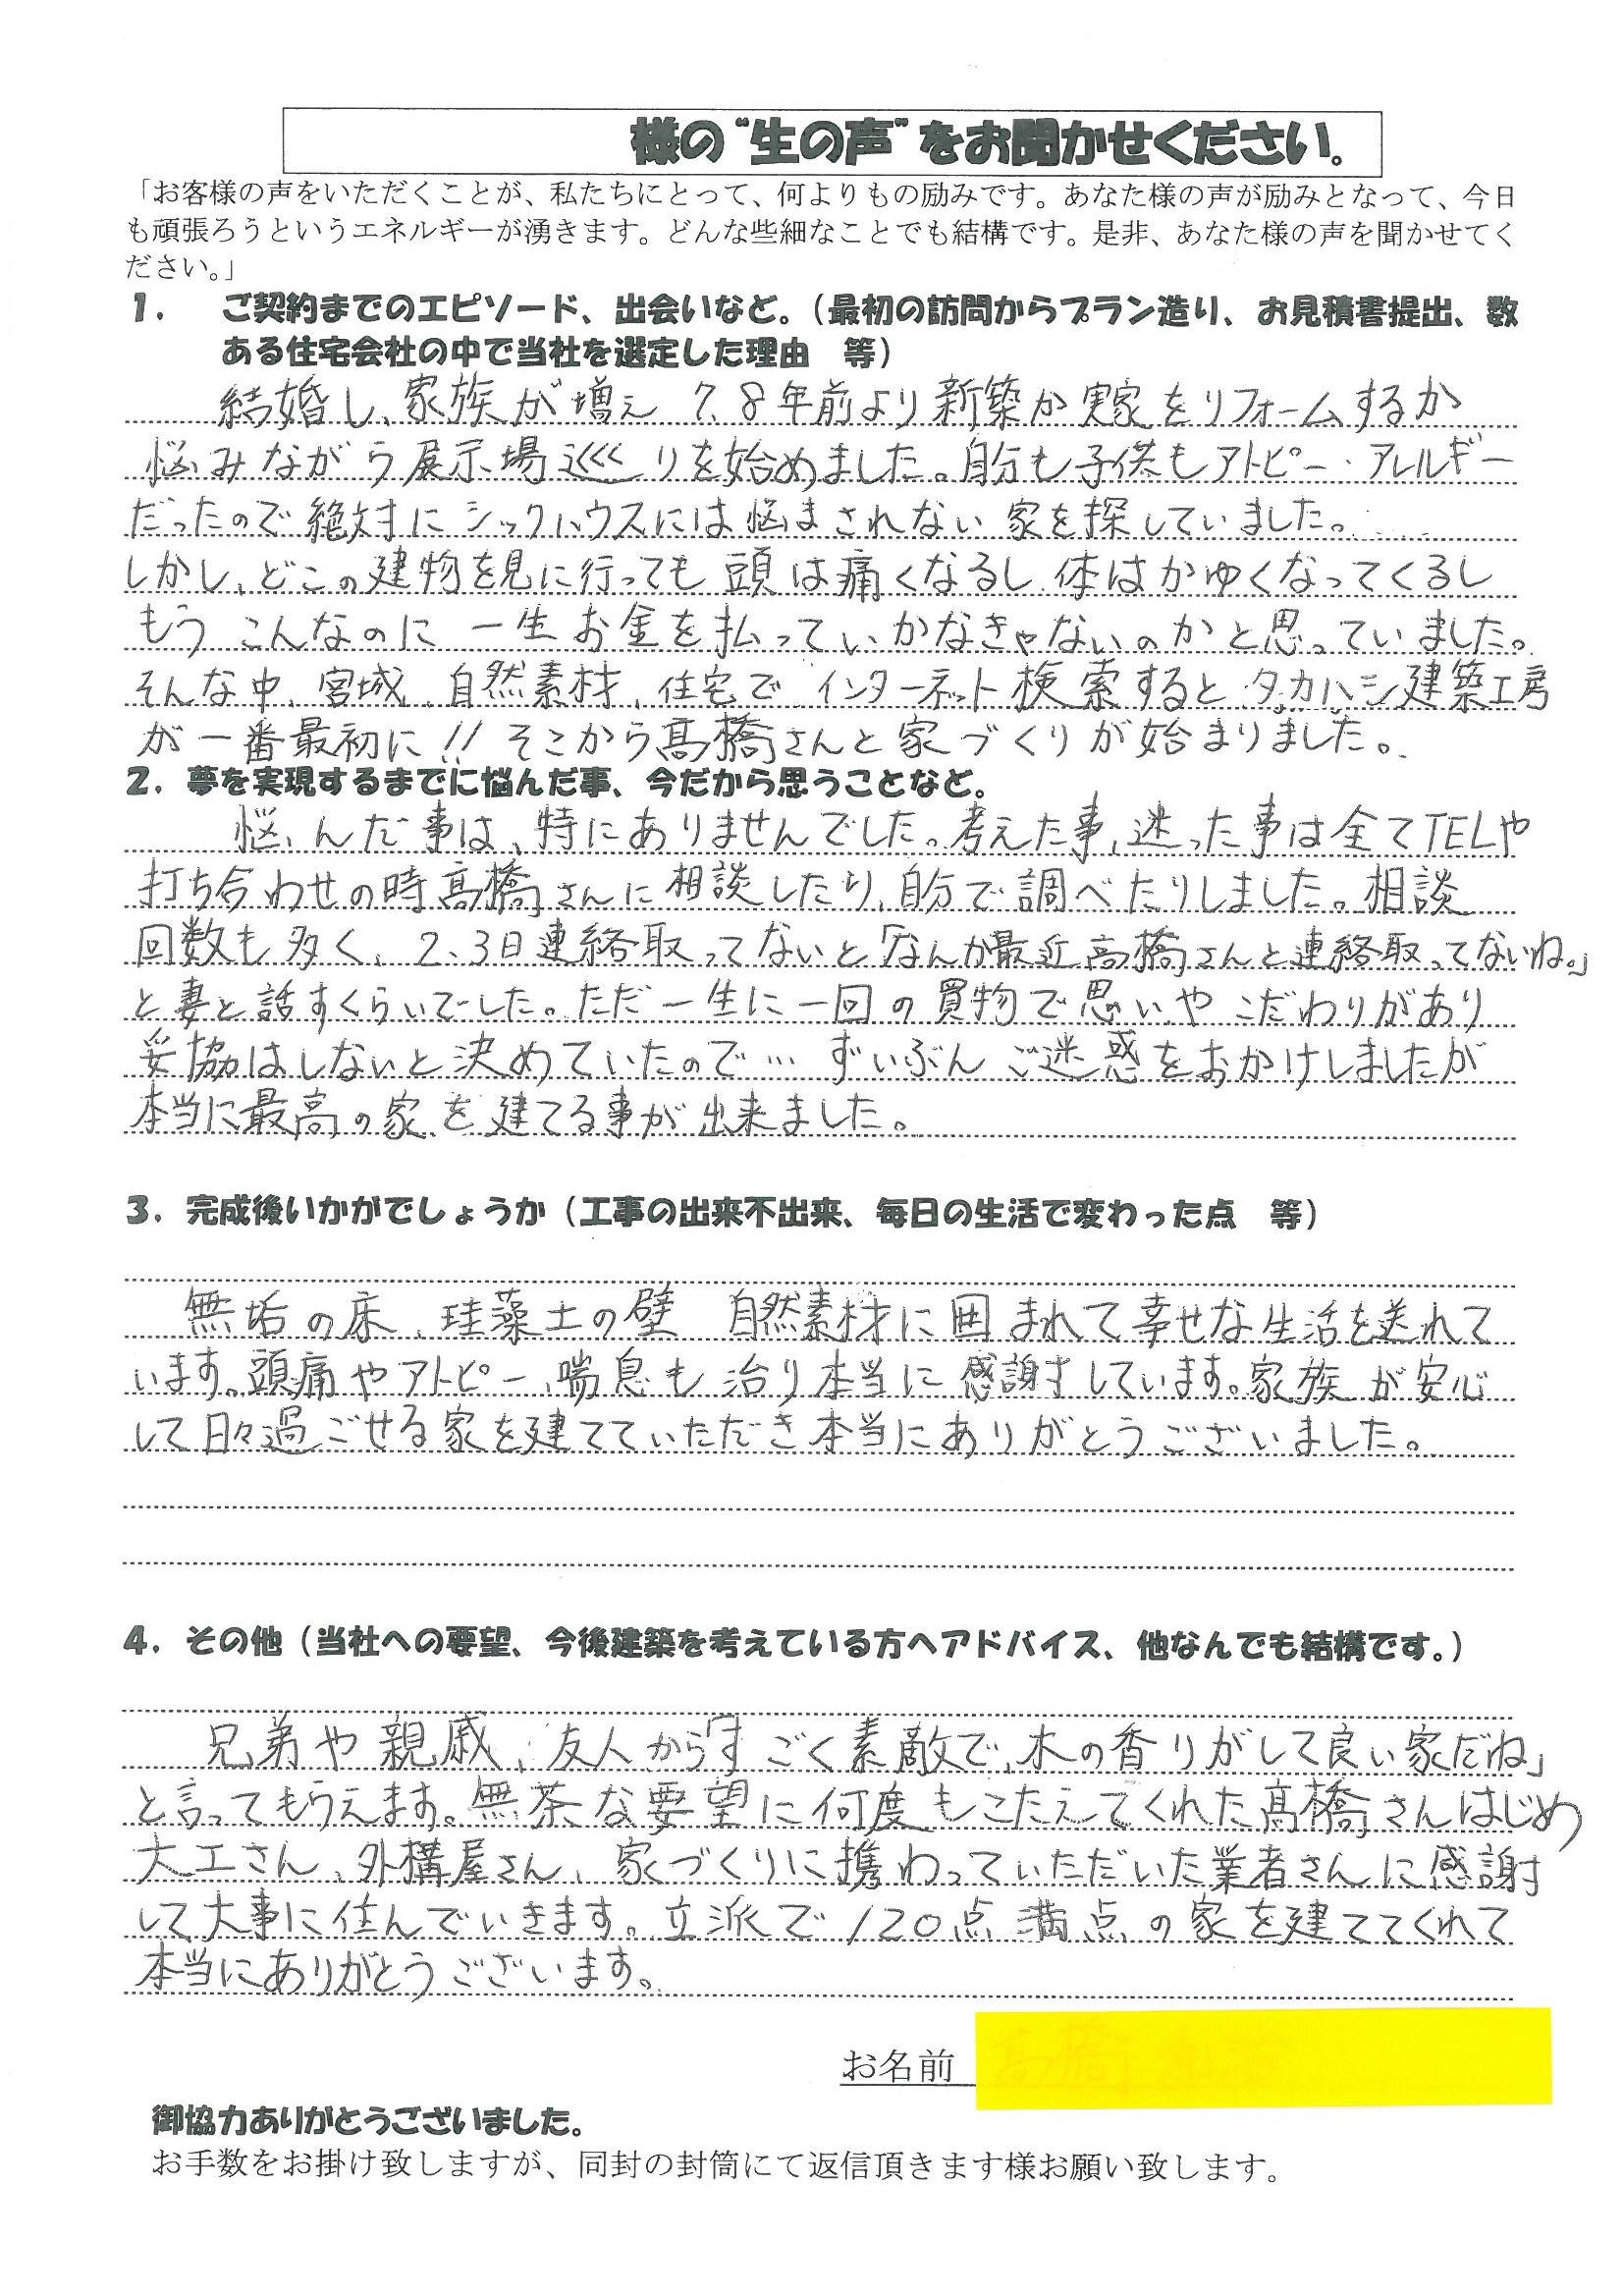 様の“生の声”をお聞かせください。
「お客様の声をいただくことが、私たちにとって、何よりもの励みです。あなた様の声が励みとなって、今日
も頑張ろうというエネルギーが湧きます。どんな些細なことでも結構です。是非、あなた様の声を聞かせてく
ださい。」
1. ご契約までのエピソード、出会いなど。（最初の訪問からプラン造り、お見積書提出、数
ある住宅会社の中で当社を選定した理由 等）
結婚し、家族が増え 7、8年前より新築か実家をリフォームするか
悩みながら展示場巡りを始めました。自分も子供もアトピー・アレルギー
だったので絶対にシックハウスには悩まされない家を探していました。
しかし、どこの建物を見に行っても頭は痛くなるし、体はかゆくなってくるし
もう こんなのに 一生お金を払っていかなきゃないのかと思っていました。
そんな中、宮城、自然素材、住宅で インターネット検索するとタカハシ建築工房
が一番最初に!! そこから髙橋さんと家づくりが始まりました。
2. 夢を実現するまでに悩んだ事、今だから思うことなど。
悩んだ事は、特にありませんでした。考えた事、迷った事は全てTELや
打ち合わせの時髙橋さんに相談したり、自分で調べたりしました。相談
回数も多く、2、3日連絡取ってないと「なんか最近髙橋さんと連絡取ってないね。」
と妻と話すくらいでした。ただ一生に一回の買物で思いやこだわりがあり
妥協はしないと決めていたので… ずいぶんご迷惑をおかけしましたが
本当に最高の家を建てる事が出来ました。
3. 完成後いかがでしょうか（工事の出来不出来、毎日の生活で変わった点 等）
無垢の床、珪藻土の壁 自然素材に囲まれて幸せな生活を送れて
います。頭痛やアトピー、喘息も治り本当に感謝しています。家族が安心
して日々過ごせる家を建てていただき本当にありがとうございました。
4. その他（当社への要望、今後建築を考えている方へアドバイス、他なんでも結構です。）
兄弟や親戚、友人から「すごく素敵で、木の香りがして良い家だね」
と言ってもらえます。無茶な要望に何度もこたえてくれた髙橋さんはじめ
大工さん、外構屋さん、家づくりに携わっていただいた業者さんに感謝
して大事に住んでいきます。立派で120点満点の家を建ててくれて
本当にありがとうございます。
お名前
御協力ありがとうございました。
お手数をお掛け致しますが、同封の封筒にて返信頂きます様お願い致します。